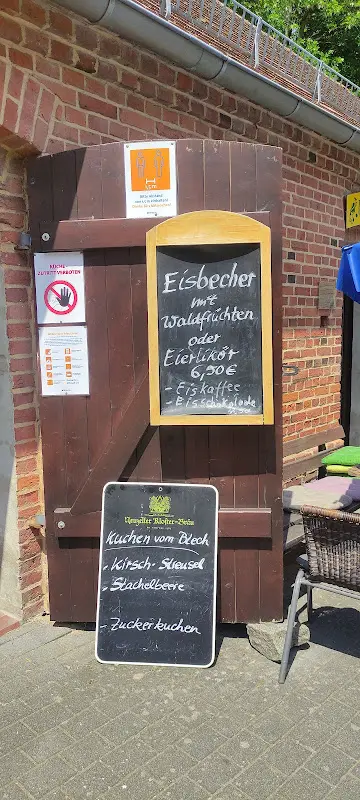 1,5 m
KÜCHE
ZUTRITT VERBOTEN
Eisbecher
mit
Waldfrüchten
oder
Eierlikör
6,50 €
- Eiskaffee
- Eisschokolade
Neuzeller Kloster-Bräu
Kuchen vom Blech
- Kirsch-Streusel
- Stachelbeere
- Zuckerkuchen